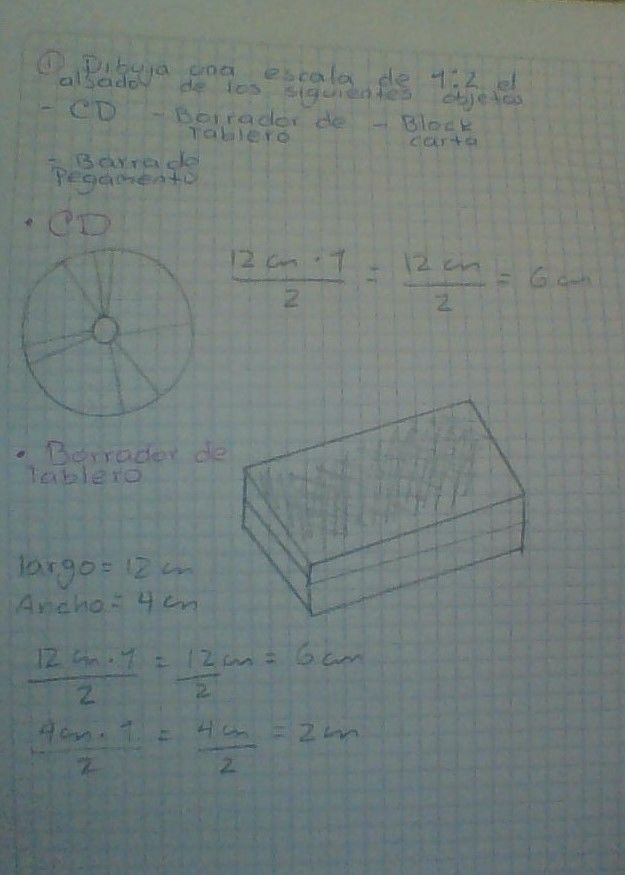 ① Dibuja una escala de 1:2 el
alsador de los siguientes objetos
- CD - Borrador de Tablero - Block carta
- Barra de Pegamento
• CD
12 cm · 1 / 2 = 12 cm / 2 = 6 cm
• Borrador de
Tablero
largo = 12 cm
Ancho = 4 cm
12 cm · 1 / 2 = 12 cm / 2 = 6 cm
4 cm · 1 / 2 = 4 cm / 2 = 2 cm